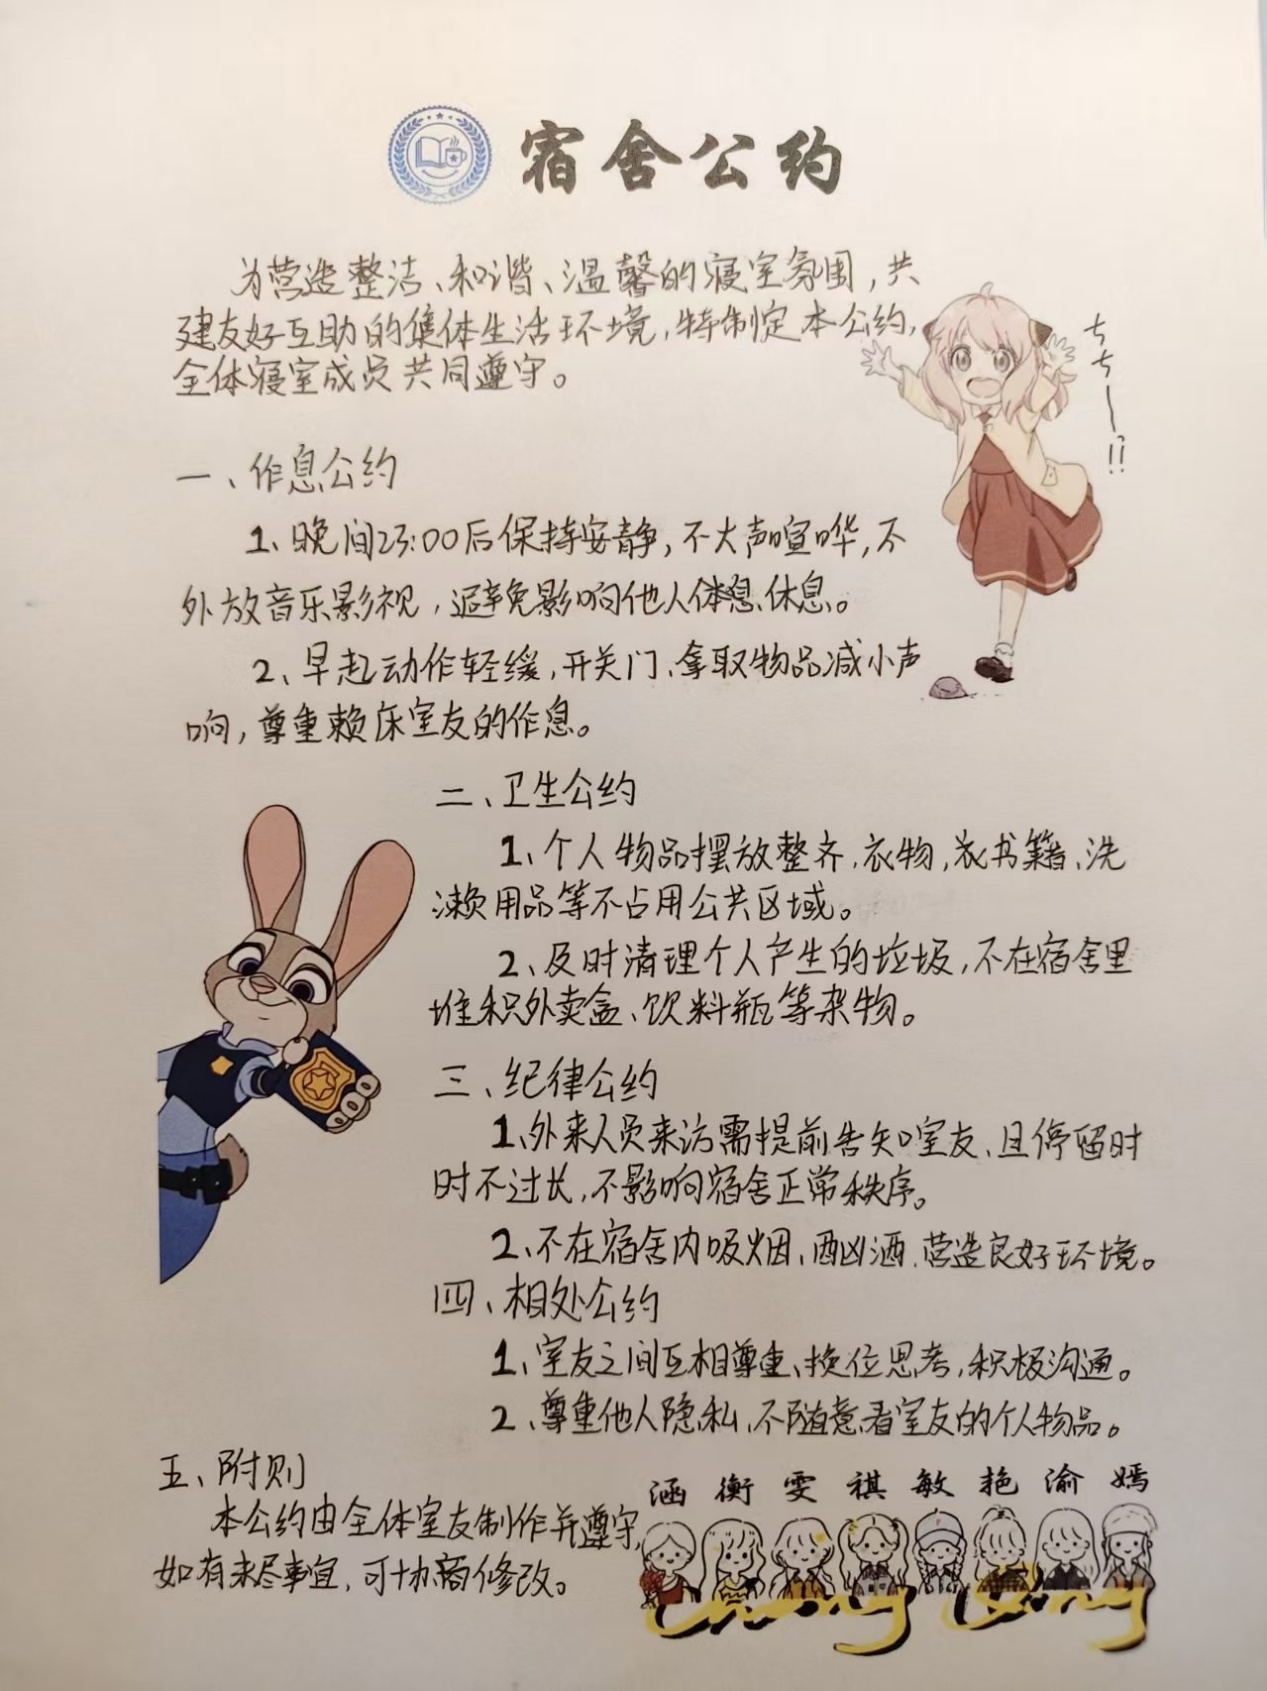 宿舍公约
为营造整洁、和谐、温馨的寝室氛围，共
建友好互助的集体生活环境，特制定本公约，
全体寝室成员共同遵守。
ちちー!?
一、作息公约
1、晚间23:00后保持安静，不大声喧哗，不
外放音乐影视，避免影响他人休息休息。
2、早起动作轻缓，开关门、拿取物品减小声
响，尊重赖床室友的作息。
二、卫生公约
1、个人物品摆放整齐，衣物，衣书籍、洗
漱用品等不占用公共区域。
2、及时清理个人产生的垃圾，不在宿舍里
堆积外卖盒、饮料瓶等杂物。
三、纪律公约
1、外来人员来访需提前告知室友、且停留时
时不过长，不影响宿舍正常秩序。
2、不在宿舍内吸烟、酗酒，营造良好环境。
四、相处公约
1、室友之间互相尊重、换位思考，积极沟通。
2、尊重他人隐私，不随意看室友的个人物品。
五、附则
本公约由全体室友制作并遵守，
如有未尽事宜，可协商修改。
涵 衡 雯 祺 敏 艳 渝 嫣
Chong Qing